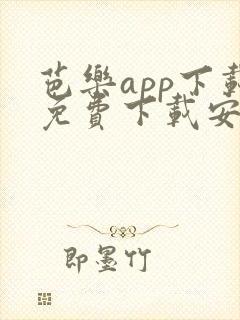 芭樂app下載
免費下載安
即墨竹